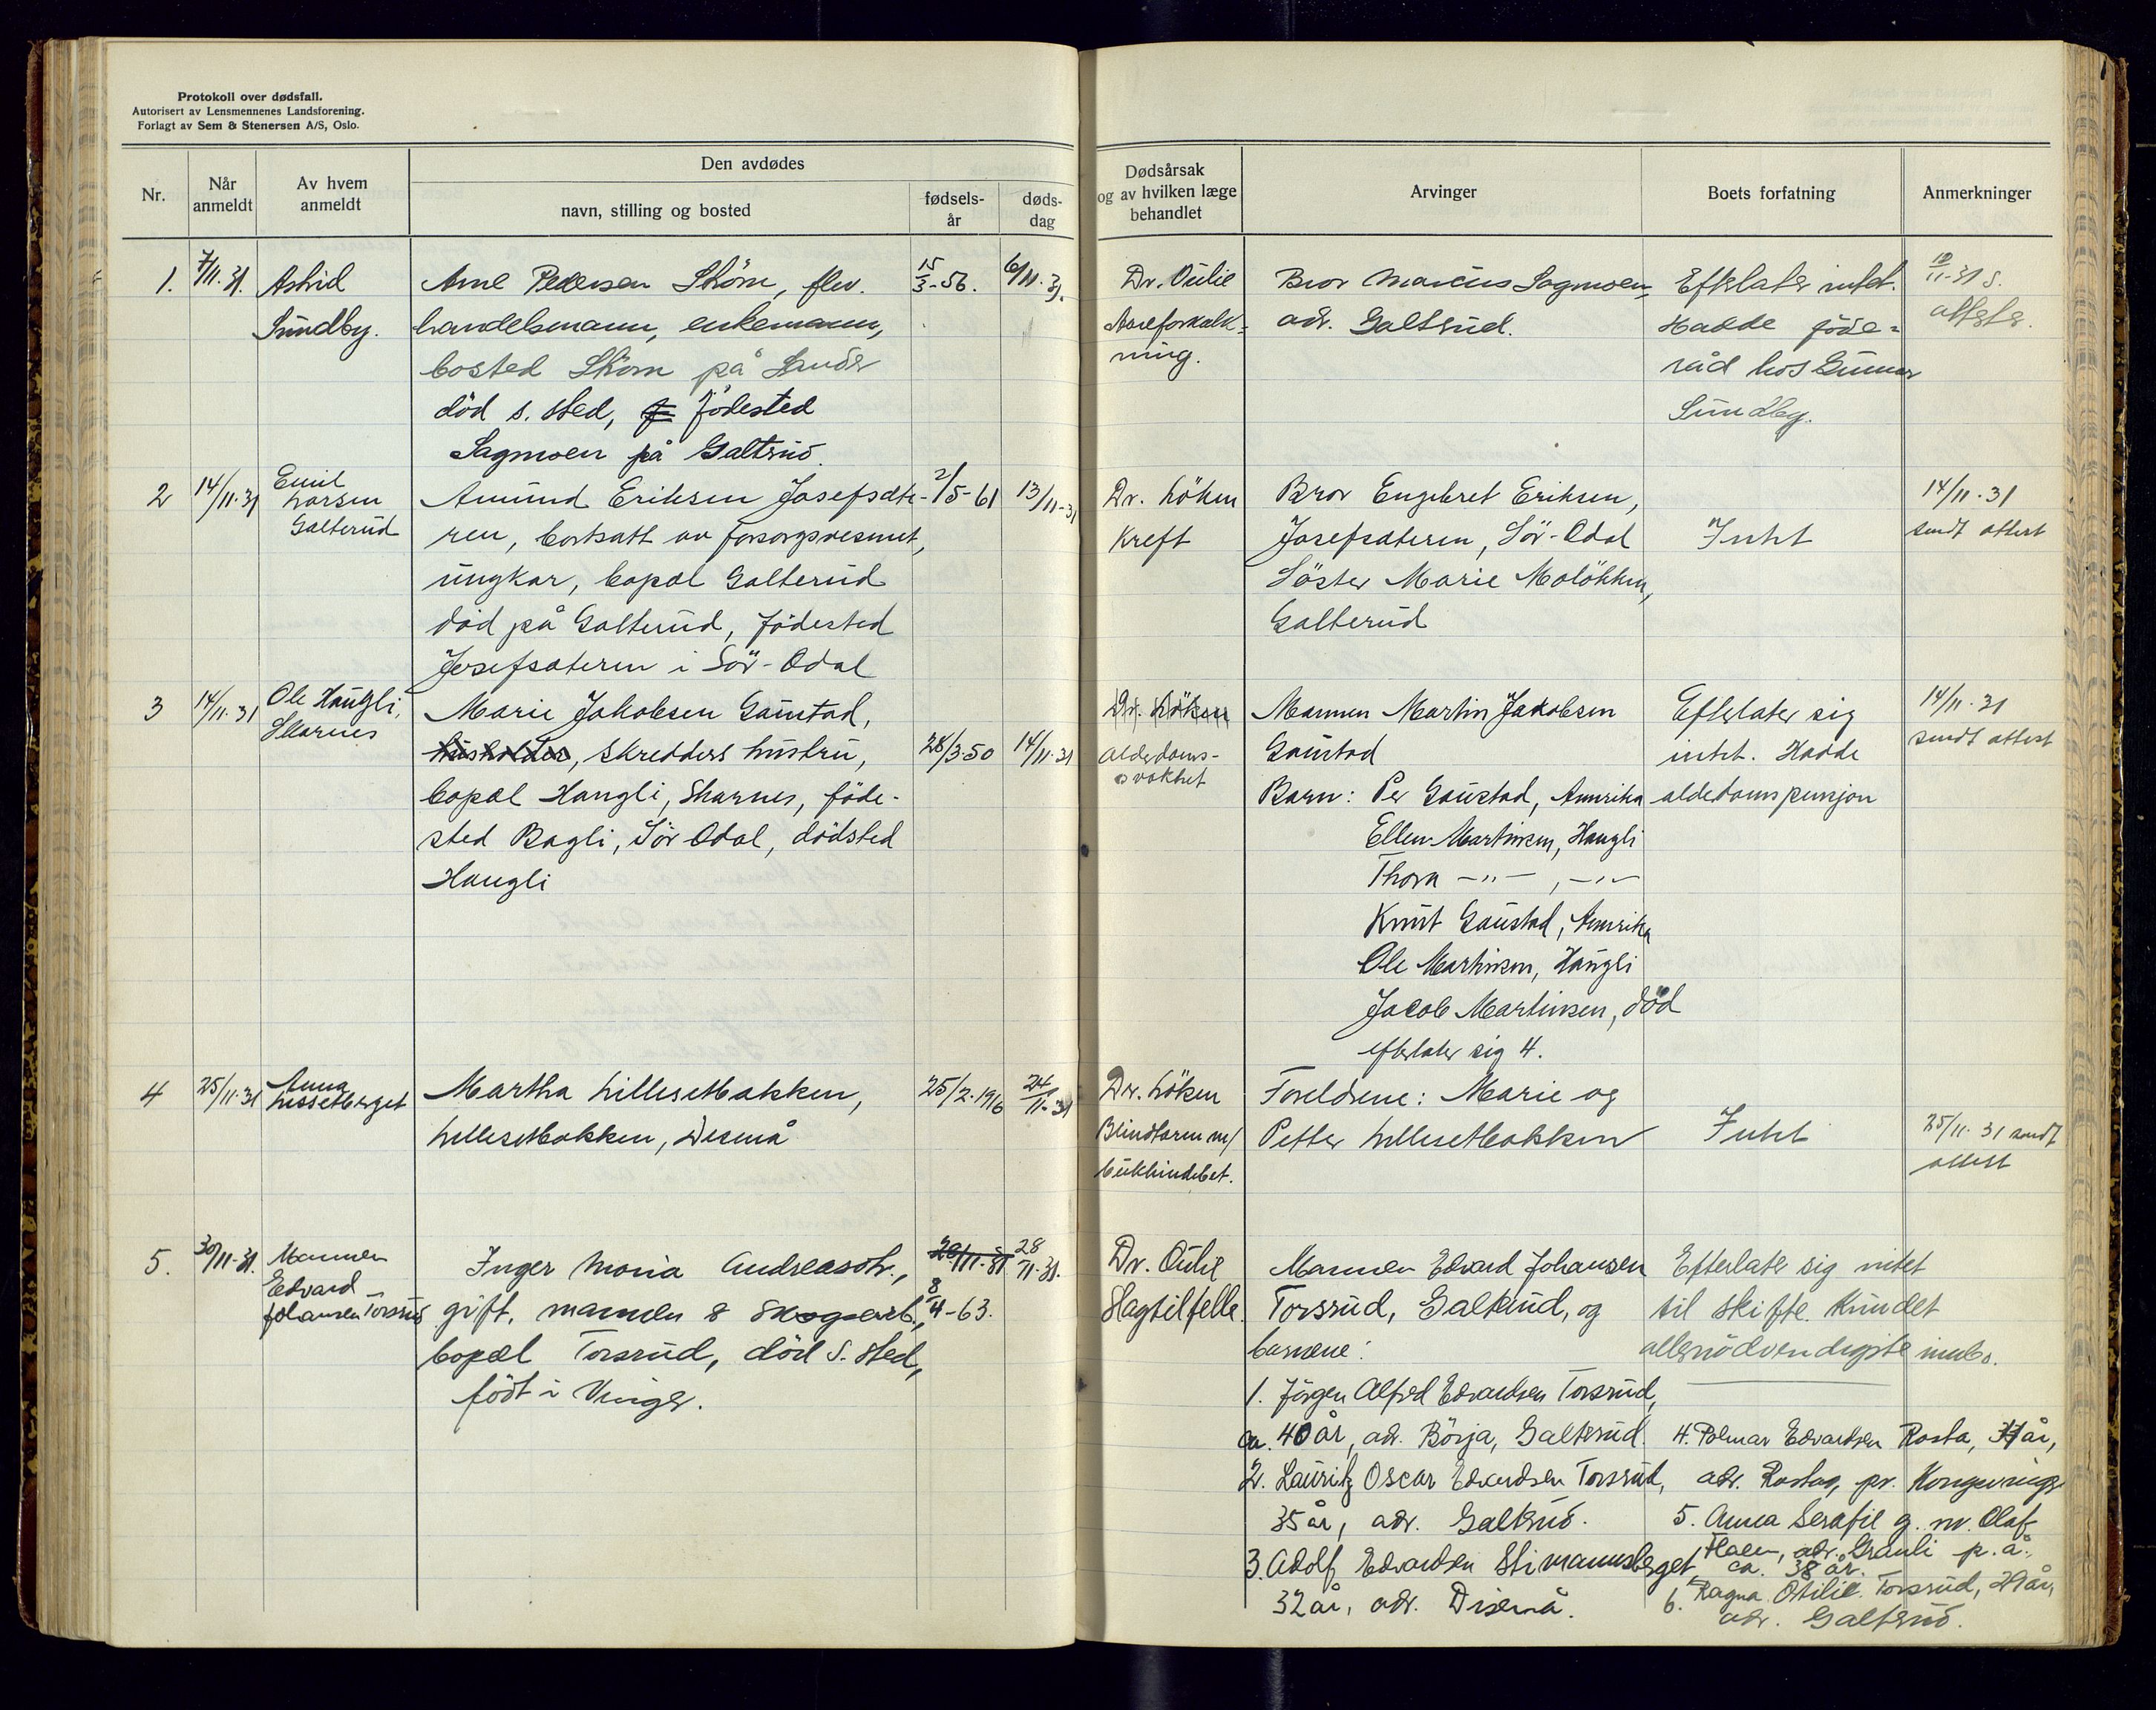 Protokoll over dødsfall.
Autorisert av Lensmennenes Landsforening.
Forlagt av Sem & Stenersen A/S, Oslo.
Nr.
Når anmeldt
Av hvem anmeldt
Den avdødes
navn, stilling og bosted
fødsels-
år
døds-
dag
Dødsårsak
og av hvilken læge
behandlet
Arvinger
Boets forfatning
Anmerkninger
1.
7/11.31.
Astrid
Sundby.
Arne Pedersen Ström, flev.
handelsmann, enkemann,
bosted Ström på Sander
död s. sted, födested
Sagmoen på Galterud.
15/3-56.
6/11.31.
Dr. Oulie
Aareforkalk-
ning.
Bror Marcus Sagmoen,
adr. Galterud.
Efterlater intet.
Hadde föde-
råd hos Gunnar
Sundby.
12/11-31 s.
attester.
2
14/11.31
Emil
Larsen
Galterud
Amund Eriksen Josefsæte-
ren, bortsatt av forsorgsvesenet,
ungkar, bopæl Galterud
död på Galterud, födested
Josefsæteren i Sör-Odal
2/5-61
13/11-31
Dr. Löken
Kreft
Bror Engebret Eriksen,
Josefsæteren, Sör-Odal
Söster Marie Molökken,
Galterud
Intet
14/11.31
sendt attest
3
14/11.31
Ole Haugli,
Skarnes
Marie Jakobsen Gaustad,
husholder, skredders hustru,
bopæl Haugli, Skarnes, föde-
sted Bagli, Sör Odal, dödsted
Haugli
28/3.50
14/11.31
Dr. Löken
alderdoms-
svakhet
Mannen Martin Jakobsen
Gaustad
Barn: Per Gaustad, Amerika
Ellen Martinsen, Haugli
Thora -"- , -"-
Knut Gaustad, Amerika
Ole Martinsen, Haugli
Jacob Martinsen, död
efterlater sig 4.
Efterlater sig
intet. Hadde
alderdomspensjon
14/11.31
sendt attest
4
25/11.31
Anna
Lissetberget
Martha Lillesetbakken,
Lillesetbakken, Disenå
25/2.1916
24/11-31
Dr. Löken
Blindtarm m/
bukhindebet.
Foreldrene: Marie og
Petter Lillesetbakken
Intet
25/11.31 sendt
attest
5.
30/11-31.
Mannen
Edvard
Johansen Torsrud
Inger Maria Andreasdtr.,
gift, mannen skogsarb.,
bopæl Torsrud, död s. sted,
födt i Vinger.
28/11-31
8/4-63.
28/11.31.
Dr. Oulie
Slagtilfelle.
Mannen Edvard Johansen
Torsrud, Galterud, og
barnene:
1. Jörgen Alfred Edvardsen Torsrud,
ca. 40 år, adr. Börja, Galterud.
2. Lauritz Oscar Edvardsen Torsrud,
35 år, adr. Galterud.
3. Adolf Edvardsen Stimannsberget,
32 år, adr. Disenå.
Efterlater sig intet
til skifte. Kun det
allernödvendigste innbo.
4. Edvardsen Rasta, år,
adr. Rastad, pr. Kongsvinger
5. Anna Serafie g. m. Olaf
adr. Granli p.å.,
ca. 38 år.
6. Ragna Otilie Torsrud, år,
adr. Galterud.